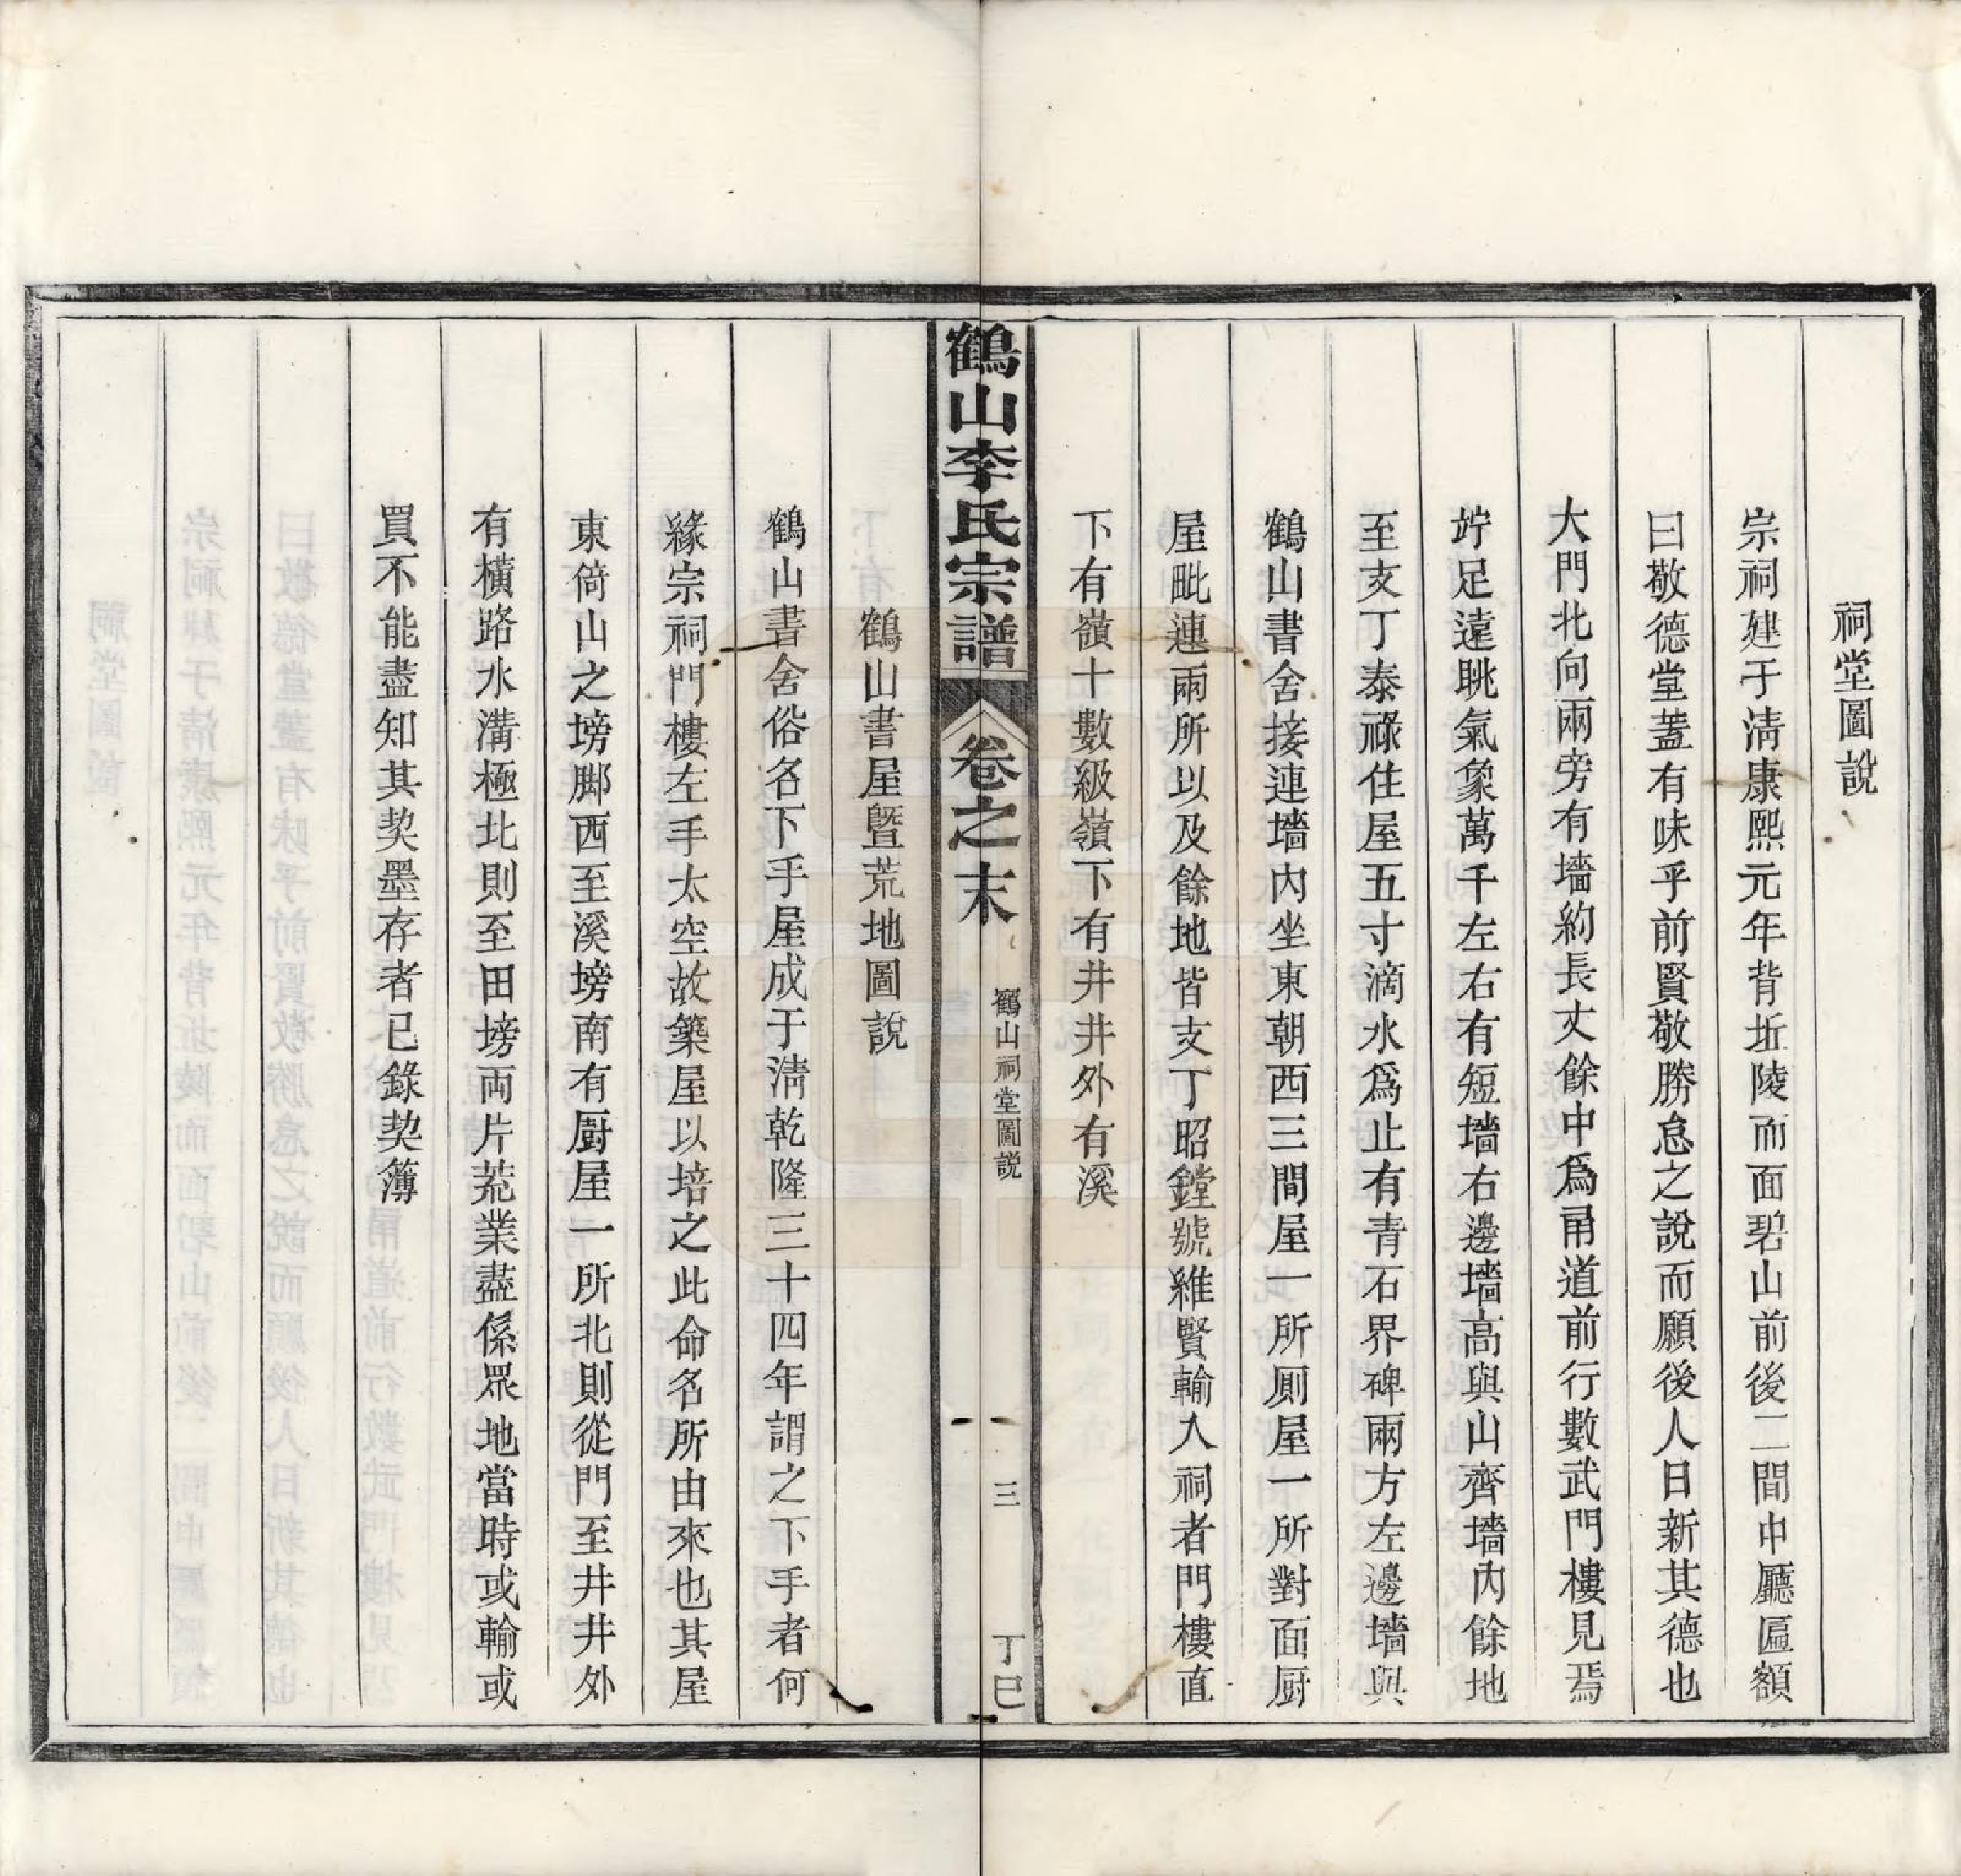 祠堂圖說
宗祠建于淸康熙元年背坵陵而面碧山前後二間中廳匾額
曰敬德堂蓋有味乎前賢敬勝怠之說而願後人日新其德也
大門北向兩旁有墻約長丈餘中爲甬道前行數武門樓見焉
竚足遠眺氣象萬千左右有短墻右邊墻高與山齊墻內餘地
至支丁泰祿住屋五寸滴水爲止有青石界碑兩方左邊墻與
鶴山書舍接連墻內坐東朝西三間屋一所厠屋一所對面厨
屋毗連兩所以及餘地皆支丁昭鏜號維賢輸入祠者門樓直
下有嶺十數級嶺下有井井外有溪
鶴山李氏宗譜
卷之末
鶴山祠堂圖說
三
丁巳
鶴山書屋曁荒地圖說
鶴山書舍俗名下手屋成于淸乾隆三十四年謂之下手者何
緣宗祠門樓左手太空故築屋以培之此命名所由來也其屋
東倚山之塝脚西至溪塝南有厨屋一所北則從門至井井外
有橫路水溝極北則至田塝両片荒業盡係眾地當時或輸或
買不能盡知其契墨存者已錄契簿